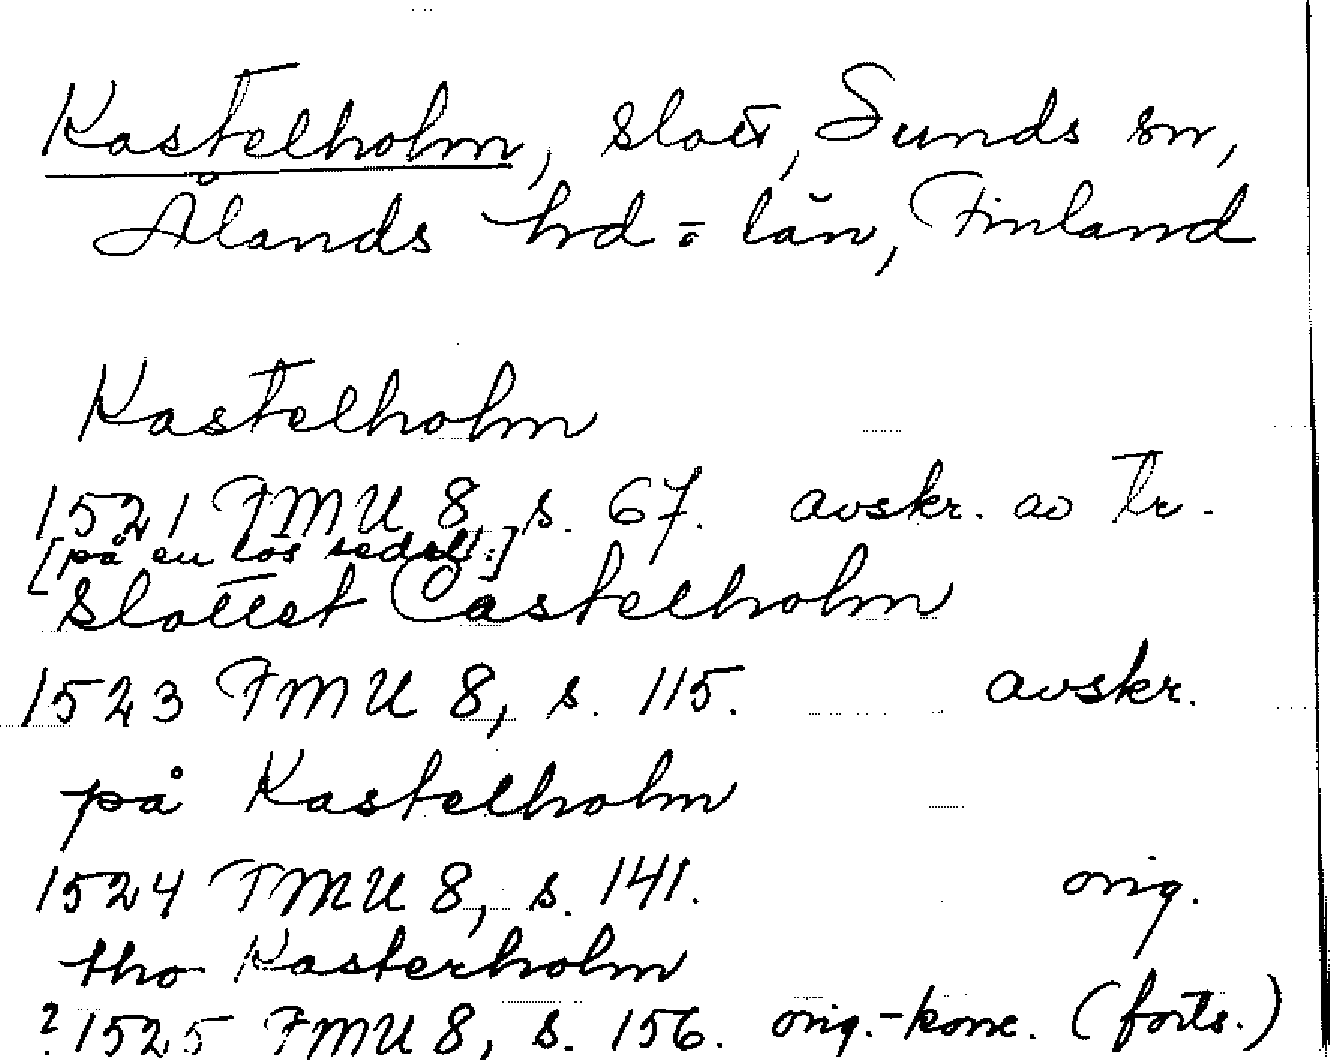 Kastelholm, slott, Sunds sn,
Ålands hd = län, Finland
Kastelholm
1521 FMU 8, s. 67. avskr. av tr.
[på en lös sedel:]
Slottet Castelholm
1523 FMU 8, s. 115. avskr.
på Kastelholm
1524 FMU 8, s. 141. orig.
tho Kasterholm
? 1525 FMU 8, s. 156. orig.-konc. (forts.)